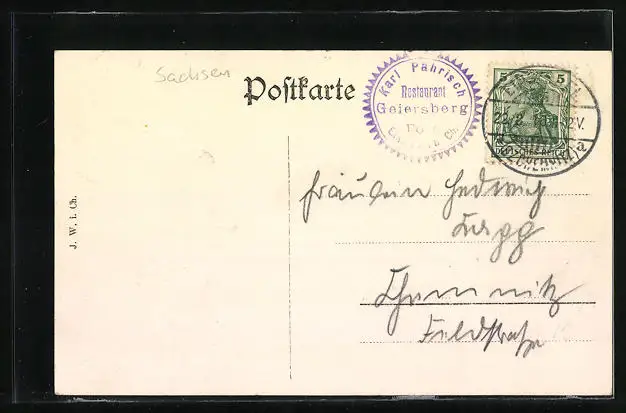 Sachsen
Postkarte
Karl Pährisch
Restaurant
Geiersberg
5 5
DEUTSCHES REICH
a
J. W. i. Ch.
Fräulein Hedwig
Chemnitz
Feldstraße